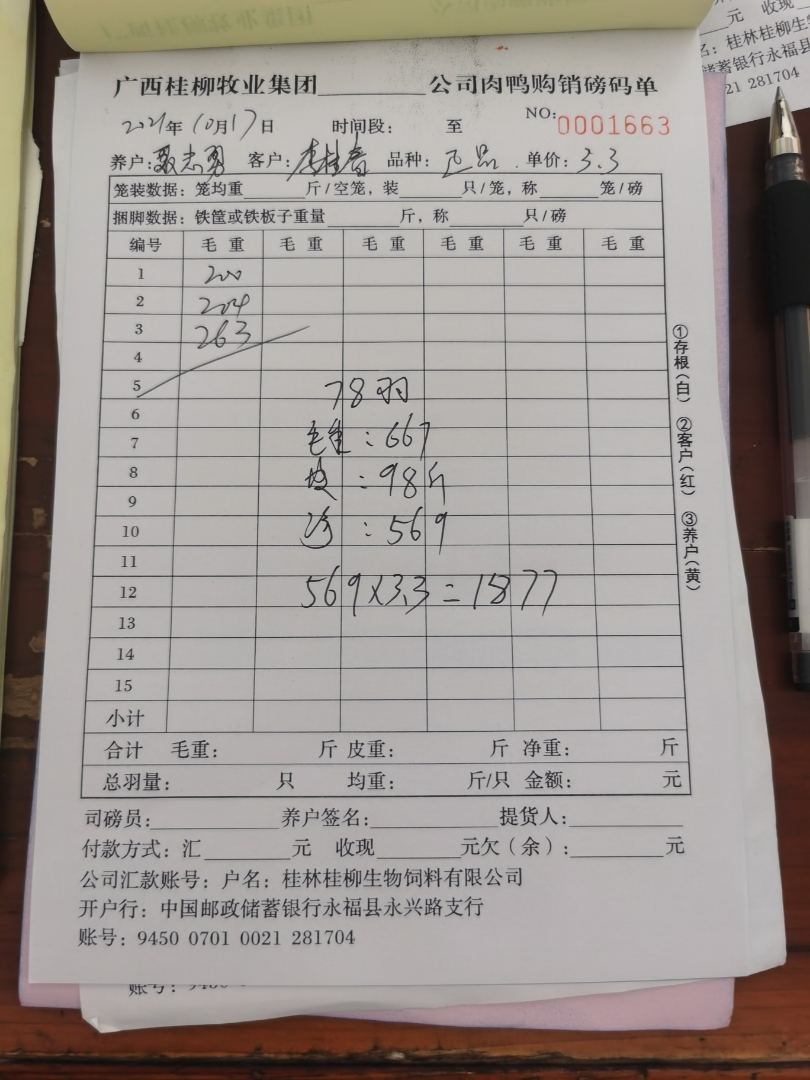 元 收现
名: 桂林桂柳生物
储蓄银行永福县
21 281704
广西桂柳牧业集团________公司肉鸭购销磅码单
2021年10月17日 时间段: 至 NO: 0001663
养户: 志勇 客户: 李桂春 品种: 正品 单价: 3.3
笼装数据: 笼均重______斤/空笼, 装______只/笼, 称______笼/磅
捆脚数据: 铁筐或铁板子重量______斤, 称______只/磅
编号 毛重 毛重 毛重 毛重 毛重 毛重
1 200
2 204
3 263
4
5 78羽
6
7 毛重: 667
8 皮: 98斤
9
10 净: 569
11
12 569×3.3=1877
13
14
15
小计
合计 毛重: 斤 皮重: 斤 净重: 斤
总羽量: 只 均重: 斤/只 金额: 元
司磅员:______ 养户签名:______ 提货人:______
付款方式: 汇______元 收现______元欠(余):______元
公司汇款账号: 户名: 桂林桂柳生物饲料有限公司
开户行: 中国邮政储蓄银行永福县永兴路支行
账号: 9450 0701 0021 281704
①存根(白) ②客户(红) ③养户(黄)
账号: